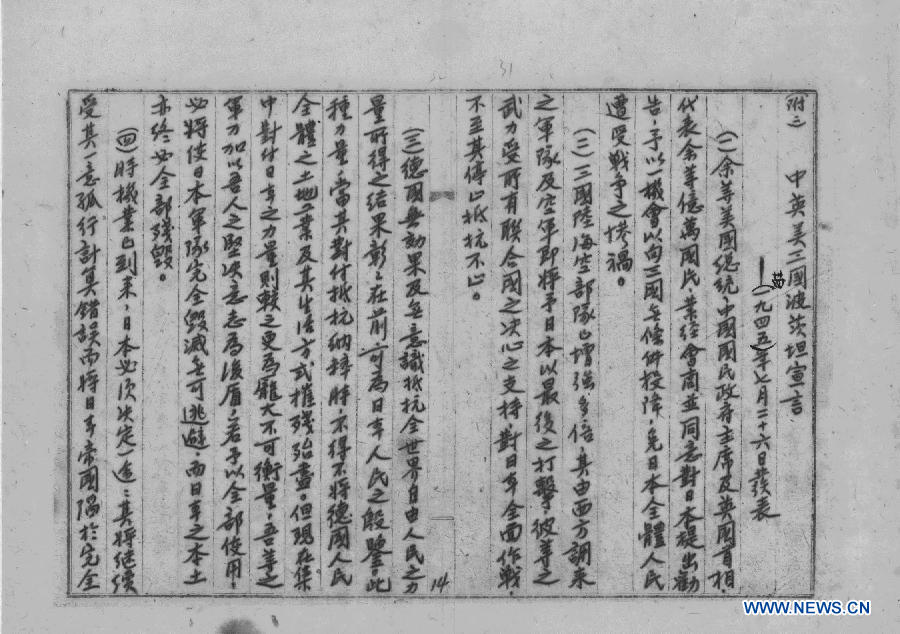 附二
中英美三國波茨坦宣言
(一九四五年七月二十六日發表
(一)余等美國總統、中國國民政府主席及英國首相,
代表余等億萬國民業經會商並同意對日本提出勸
告,予以一機會以向三國無條件投降,免日本全體人民
遭受戰爭之慘禍。
(二)三國陸海空部隊已增強多倍,其由西方調來
之軍隊及空軍即將予日本以最後之打擊,彼等之
武力受所有聯合國之決心之支持,對日本全面作戰,
不至其停止抵抗不止。
(三)德國無効果及無意識抵抗全世界自由人民之力
量所得之結果彰彰在前,可為日本人民之殷鑒。此
種力量當其對付抵抗納粹時,不得不將德國人民
全體之土地工業及其生活方式摧殘殆盡。但現在集
中對付日本之力量則較之更為龐大不可衡量,吾等之
軍力加以吾人之堅決意志為後盾,若予以全部使用,
必將使日本軍隊完全毀滅無可逃避,而日本之本土
亦終必全部殘毀。
(四)時機業已到來,日本必須決定一途:其將继續
受其一意孤行計算錯誤而將日本帝國陷於完全
14
31
WWW.NEWS.CN